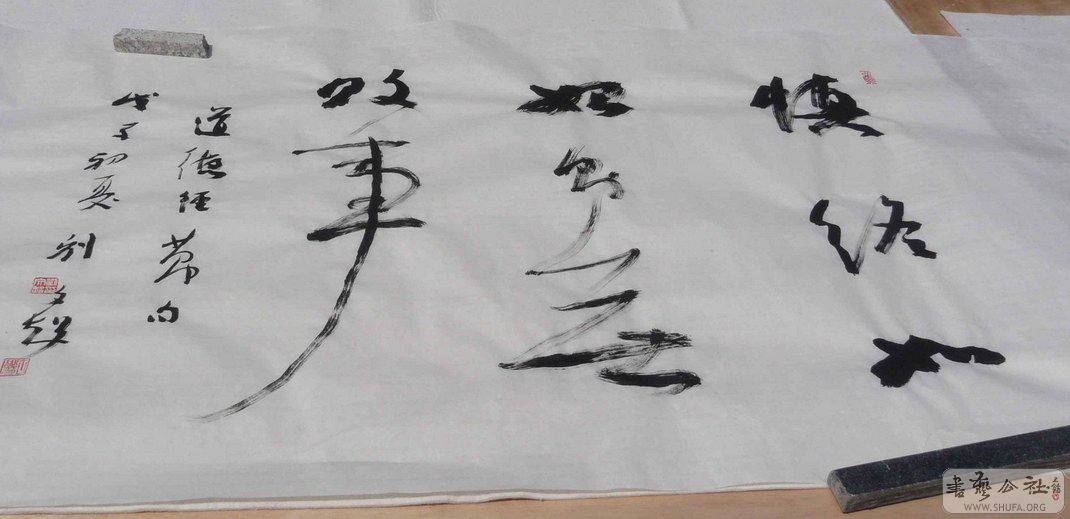 慎终如
始则無
败事
道德经 节句
戊子初夏 刘文
書藝公社
WWW.SHUFA.ORG